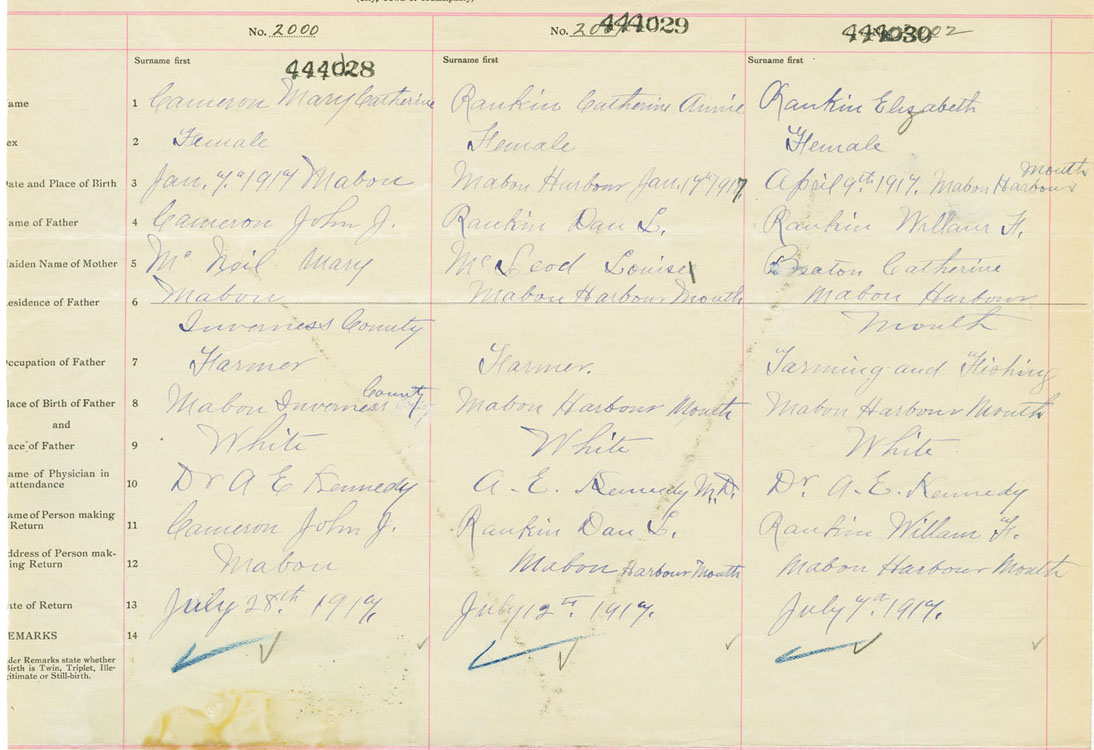 No. 2000
No. 2001 444029
444030 2002
Surname first
Surname first
Surname first
444028
ame 1 Cameron Mary Catherine Rankin Catherine Annie Rankin Elizabeth
ex 2 Female Female Female
Date and Place of Birth 3 Jan. 7th 1917 Mabou Mabou Harbour Jan. 17th 1917 April 9th 1917. Mabou Harbour Mouth
ame of Father 4 Cameron John J. Rankin Dan L. Rankin Willam F.
aiden Name of Mother 5 Mc Neil Mary Mc Leod Louise Beaton Catherine
esidence of Father 6 Mabou Mabou Harbour Mouth Mabou Harbour
Inverness County Mouth
ccupation of Father 7 Farmer Farmer. Farming and Fishing
lace of Birth of Father 8 Mabou Inverness County Mabou Harbour Mouth Mabou Harbour Mouth
and
ace of Father 9 White White White
ame of Physician in
attendance 10 Dr A E Kennedy A. E. Kennedy M.D. Dr. A. E. Kennedy
ame of Person making
Return 11 Cameron John J. Rankin Dan L. Rankin Willam F.
ddress of Person mak-
ing Return 12 Mabou Mabou Harbour Mouth Mabou Harbour Mouth
ate of Return 13 July 28th 1917. July 12th. 1917. July 7th. 1917.
EMARKS 14
der Remarks state whether
Birth is Twin, Triplet, Ille-
gitimate or Still-birth.